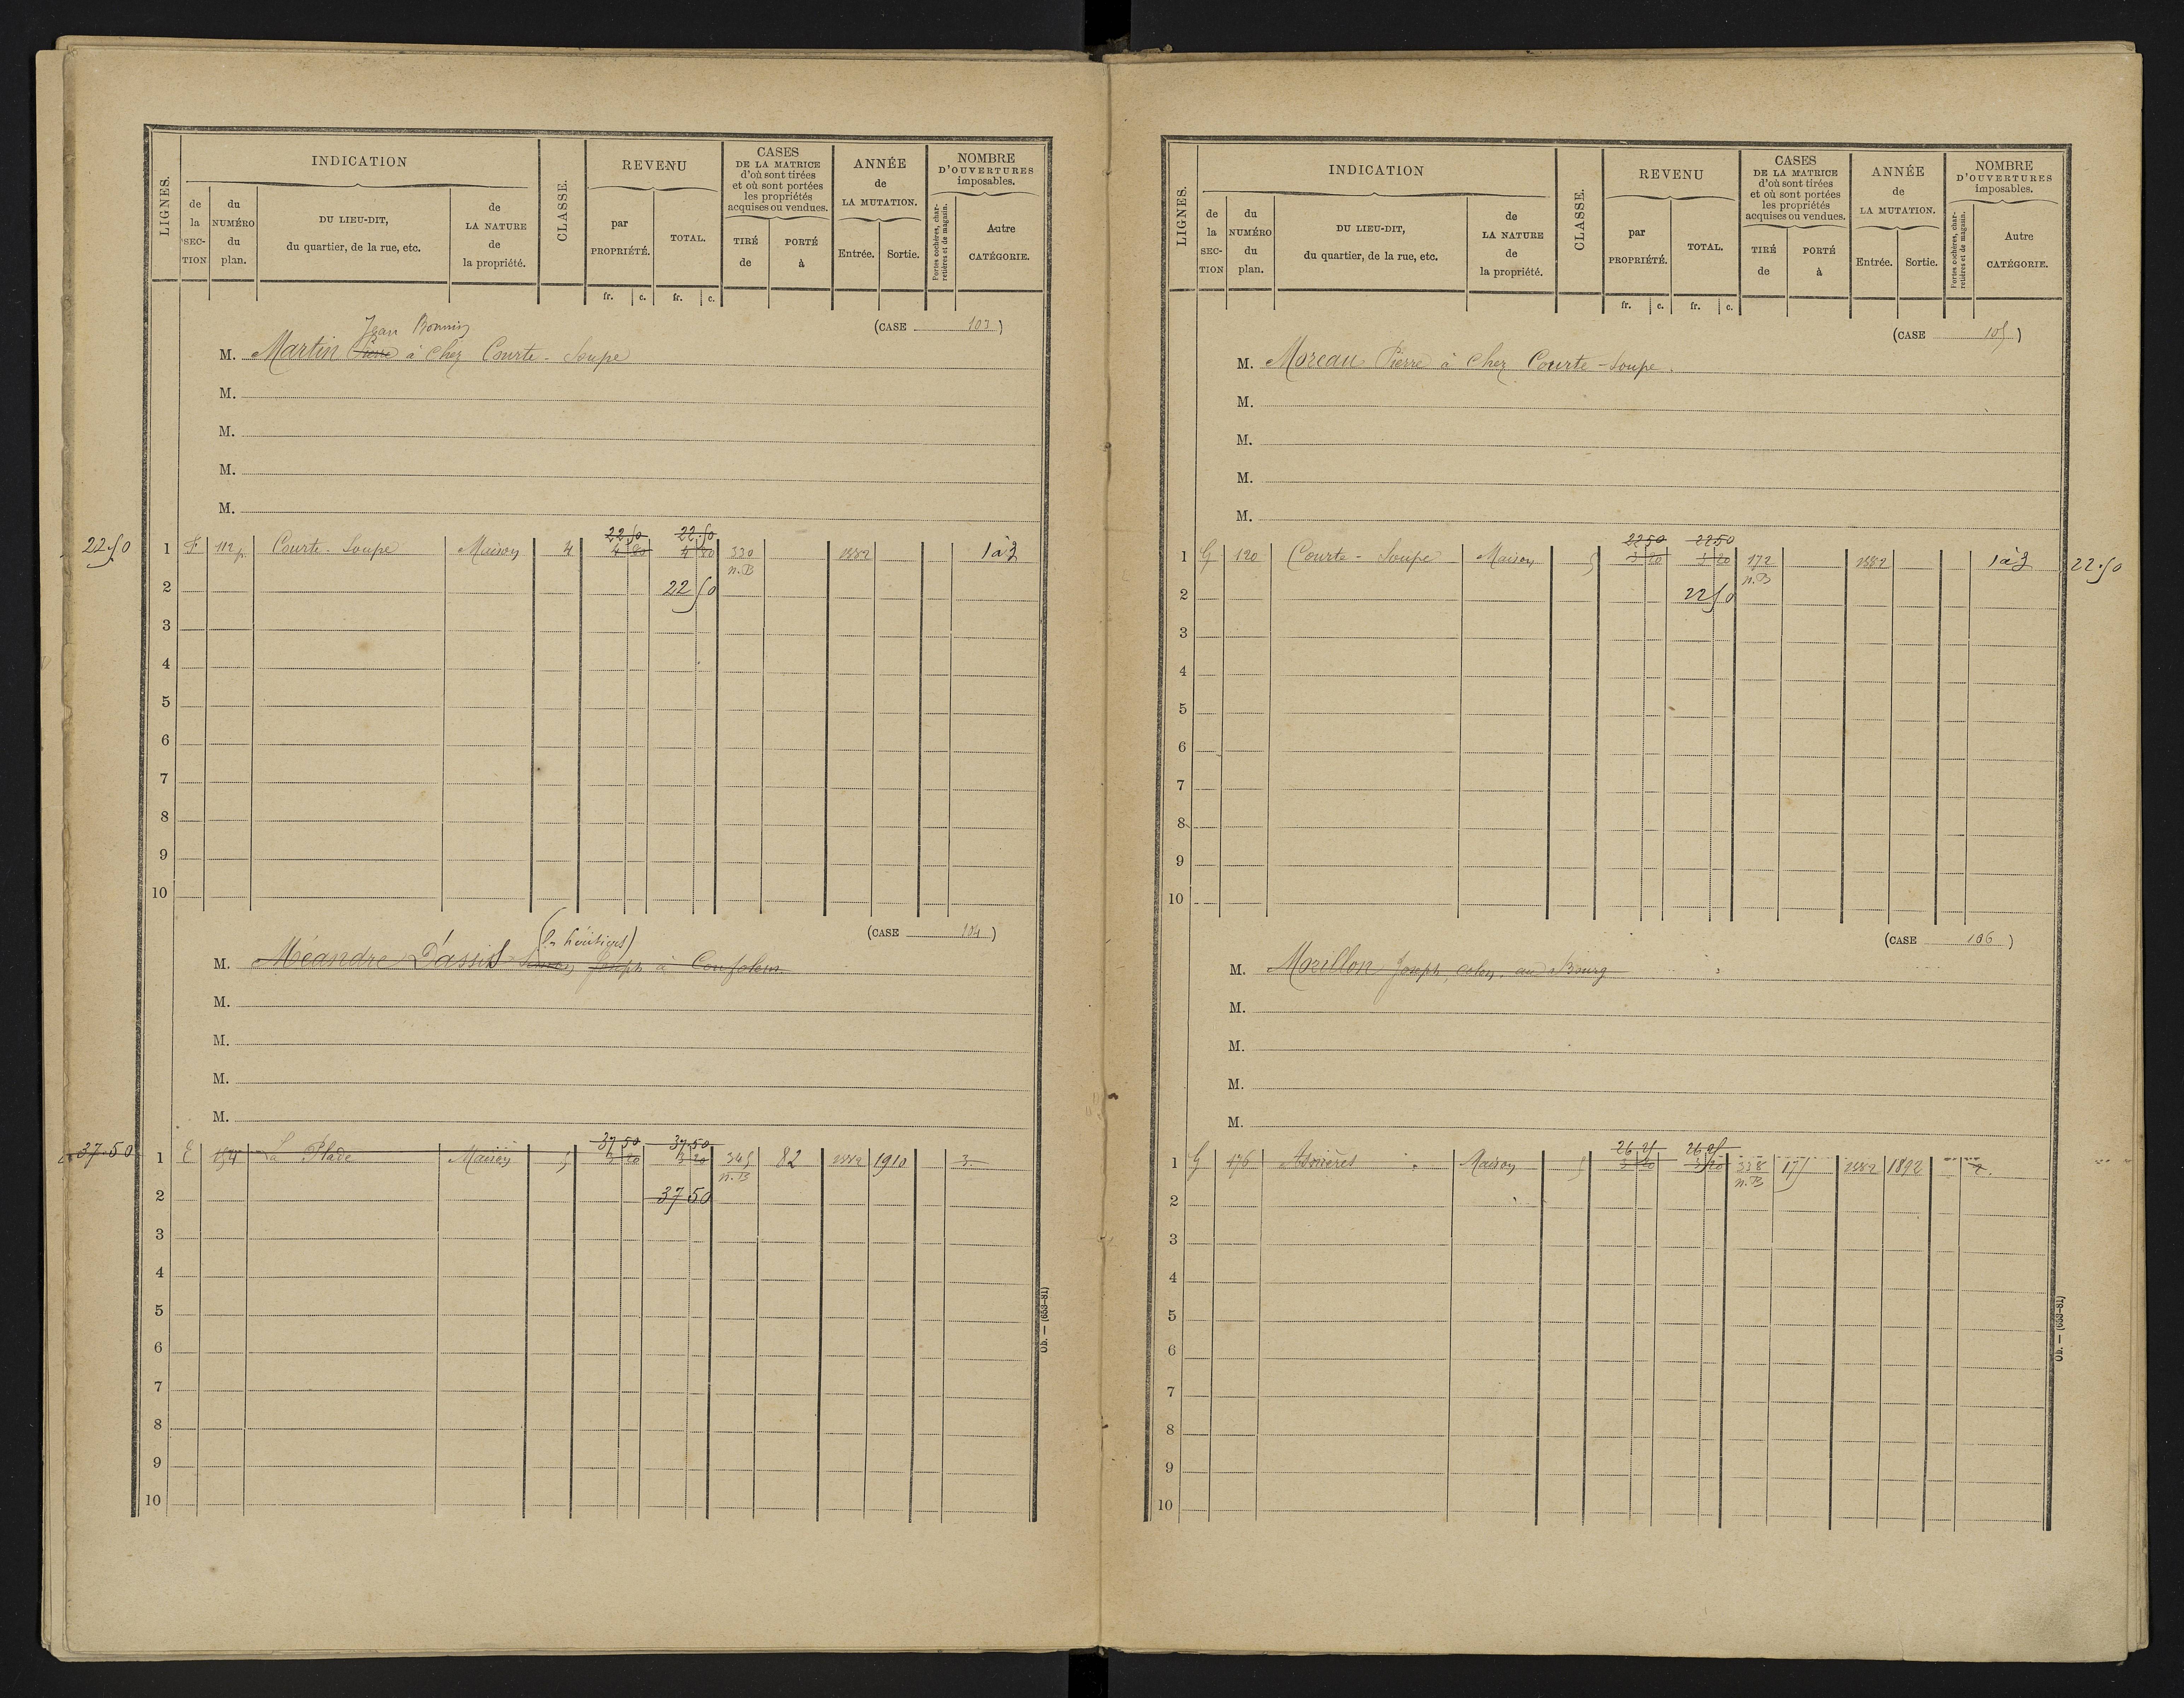 LIGNES.
INDICATION
de la SECTION
du NUMÉRO du plan.
DU LIEU-DIT, du quartier, de la rue, etc.
de LA NATURE de la propriété.
CLASSE.
REVENU
par PROPRIÉTÉ.
TOTAL.
fr. c. fr. c.
CASES DE LA MATRICE d'où sont tirées et où sont portées les propriétés acquises ou vendues.
TIRÉ de
PORTÉ à
ANNÉE de LA MUTATION.
Entrée. Sortie.
NOMBRE D'OUVERTURES imposables.
Portes cochères, charretières et de magasin.
Autre CATÉGORIE.
(CASE 103)
Jean Bonnin
M. Martin Pierre à Chez Courte-Soupe
M.
M.
M.
M.
22 50 22.50
22.50 1 F 112 p. Courte-Soupe Maison 4 4 80 4 80 330 1882 1 à 3
n.B
2 22 50
3
4
5
6
7
8
9
10
(CASE 104)
(les héritiers)
M. Méandre Dassit Joseph à Confolens
M.
M.
M.
M.
37 50 37.50
37.50 1 E La Plade Maison 5 3 20 3 20 345 82 1882 1910 3
n.B
2 37 50
3
4
5
6
7
8
9
10
Ob. — (653-81)
LIGNES.
INDICATION
de la SECTION
du NUMÉRO du plan.
DU LIEU-DIT, du quartier, de la rue, etc.
de LA NATURE de la propriété.
CLASSE.
REVENU
par PROPRIÉTÉ.
TOTAL.
fr. c. fr. c.
CASES DE LA MATRICE d'où sont tirées et où sont portées les propriétés acquises ou vendues.
TIRÉ de
PORTÉ à
ANNÉE de LA MUTATION.
Entrée. Sortie.
NOMBRE D'OUVERTURES imposables.
Portes cochères, charretières et de magasin.
Autre CATÉGORIE.
(CASE 105)
M. Moreau Pierre à Chez Courte-Soupe.
M.
M.
M.
M.
22 50 22 50
1 G 120 Courte-Soupe Maison 5 3 20 3 20 172 1882 1 à 3 22.50
n.B
2 22 50
3
4
5
6
7
8
9
10
(CASE 106)
M. Morillon Joseph, colon, au Bourg
M.
M.
M.
M.
26 25 26 25
1 G 176 Asnières Maison 5 3 20 3 20 338 175 1882 1892 2.
n.B
2
3
4
5
6
7
8
9
10
Ob. — (653-81)